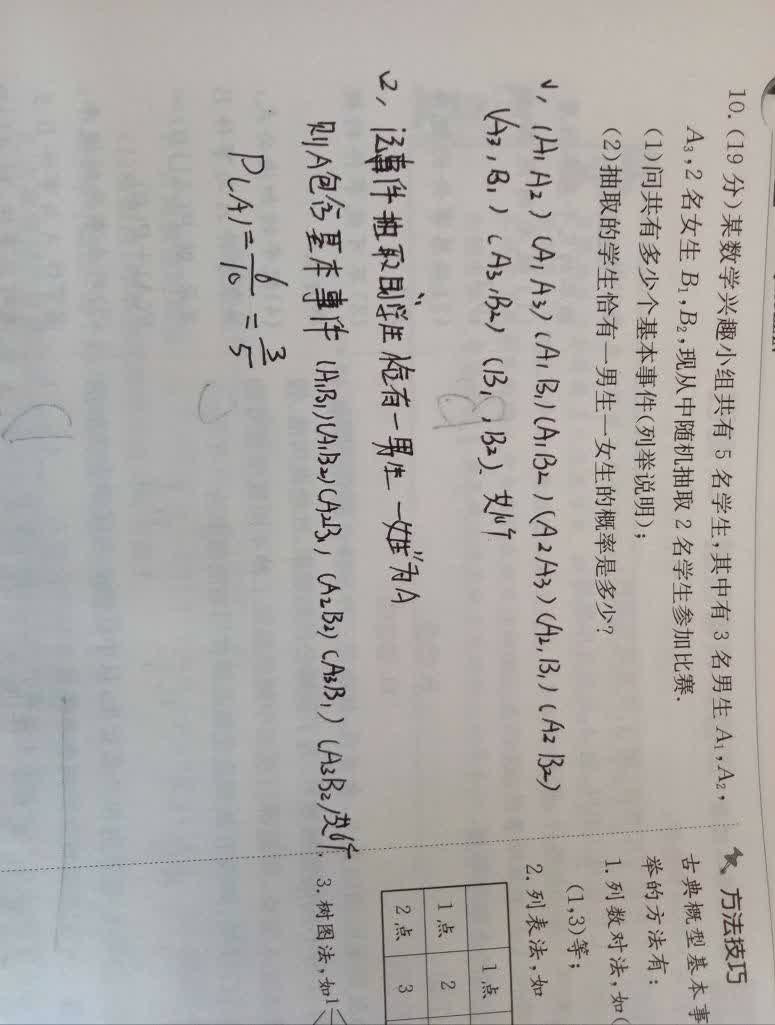 10.(19 分)某数学兴趣小组共有 5 名学生,其中有 3 名男生 A₁,A₂,
A₃,2 名女生 B₁,B₂,现从中随机抽取 2 名学生参加比赛.
(1)问共有多少个基本事件(列举说明);
(2)抽取的学生恰有一男生一女生的概率是多少?
(A₁ A₂) (A₁ A₃) (A₁ B₁) (A₁ B₂) (A₂ A₃) (A₂, B₁) (A₂ B₂)
(A₃, B₁) (A₃, B₂) (B₁, B₂)、共
2, 记事件抽取的学生“恰有一男生 一女生”为A
则A包含基本事件 (A₁B₁)(A₁B₂)(A₂B₁) (A₂B₂) (A₃B₁) (A₃B₂)共6个
P(A)=6/10=3/5
方法技巧
古典概型基本事
举的方法有:
1.列数对法,如(
(1,3)等;
2.列表法,如
1 点
1 点 2
2 点 3
3.树图法,如1